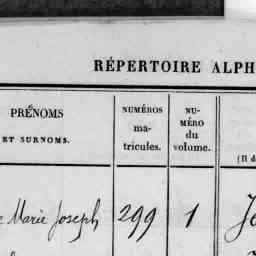 RÉPERTOIRE ALPH
PRÉNOMS
ET SURNOMS.
NUMÉROS
ma-
tricules.
NU-
MÉRO
du
volume.
(Il d
e Marie Joseph 299 1 Je